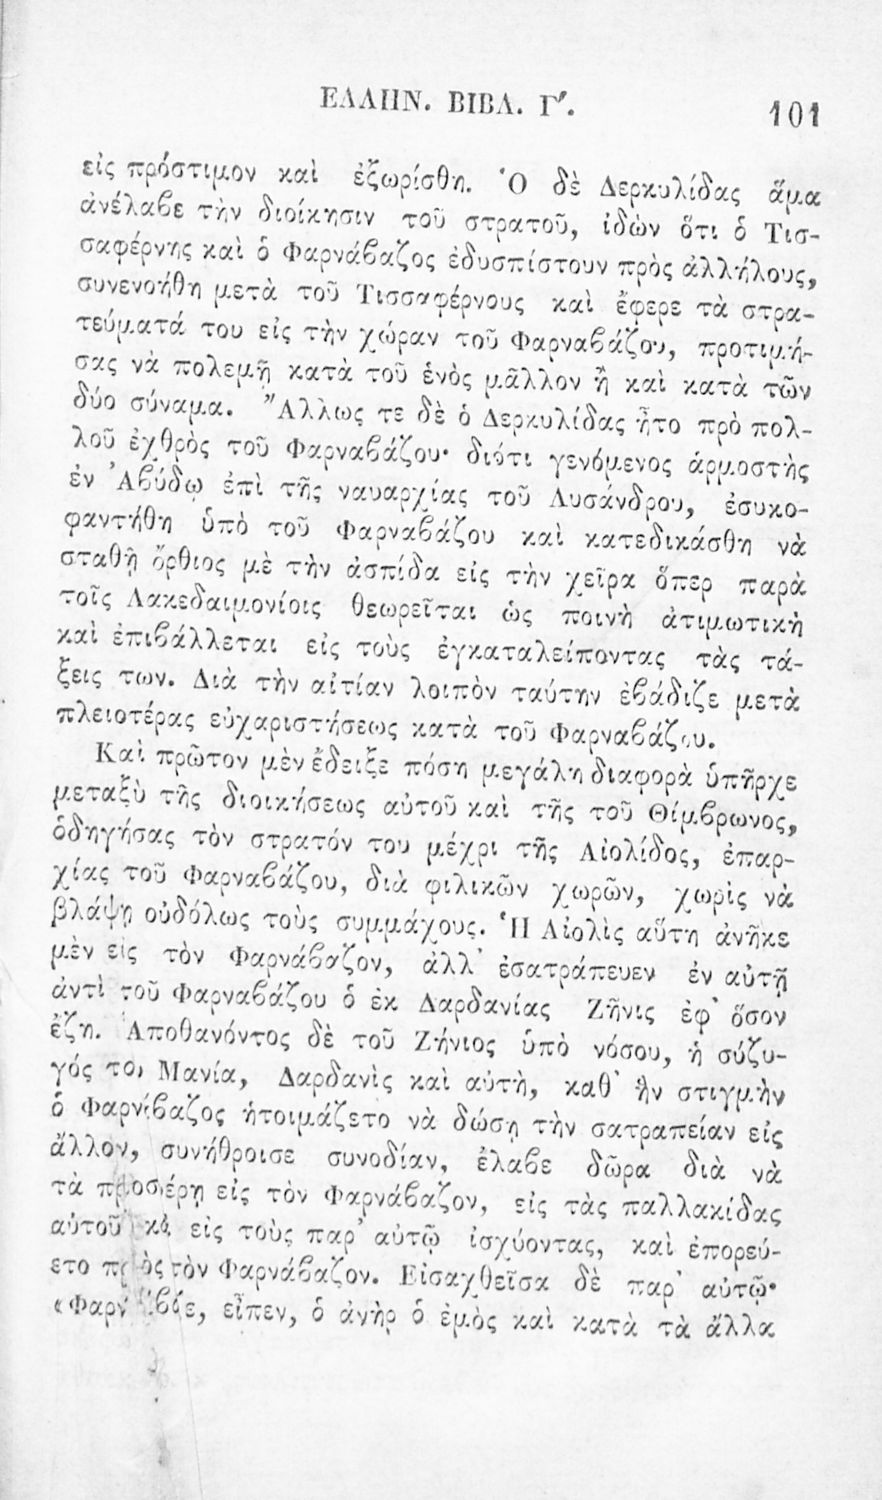 ΕΛΛΗΝ. ΒΙΒΛ. Γʹ. 101
εἰς πρόστιμον καὶ ἐξωρίσθη. Ὁ δὲ Δερκυλίδας ἅμα
ἀνέλαβε τὴν διοίκησιν τοῦ στρατοῦ, ἰδὼν ὅτι ὁ Τισ-
σαφέρνης καὶ ὁ Φαρνάβαζος ἐδυσπίστουν πρὸς ἀλλήλους,
συνενοήθη μετὰ τοῦ Τισσαφέρνους καὶ ἔφερε τὰ στρα-
τεύματά του εἰς τὴν χώραν τοῦ Φαρναβάζου, προτιμή-
σας νὰ πολεμῇ κατὰ τοῦ ἑνὸς μᾶλλον ἢ καὶ κατὰ τῶν
δύο σύναμα. Ἄλλως τε δὲ ὁ Δερκυλίδας ἦτο πρὸ πολ-
λοῦ ἐχθρὸς τοῦ Φαρναβάζου· διότι γενόμενος ἁρμοστὴς
ἐν Ἀβύδῳ ἐπὶ τῆς ναυαρχίας τοῦ Λυσάνδρου, ἐσυκο-
φαντήθη ὑπὸ τοῦ Φαρναβάζου καὶ κατεδικάσθη νὰ
σταθῇ ὄρθιος μὲ τὴν ἀσπίδα εἰς τὴν χεῖρα ὅπερ παρὰ
τοῖς Λακεδαιμονίοις θεωρεῖται ὡς ποινὴ ἀτιμωτικὴ
καὶ ἐπιβάλλεται εἰς τοὺς ἐγκαταλείποντας τὰς τά-
ξεις των. Διὰ τὴν αἰτίαν λοιπὸν ταύτην ἐβάδιζε μετὰ
πλειοτέρας εὐχαριστήσεως κατὰ τοῦ Φαρναβάζου.
Καὶ πρῶτον μὲν ἔδειξε πόση μεγάλη διαφορὰ ὑπῆρχε
μεταξὺ τῆς διοικήσεως αὐτοῦ καὶ τῆς τοῦ Θίμβρωνος,
ὁδηγήσας τὸν στρατόν του μέχρι τῆς Αἰολίδος, ἐπαρ-
χίας τοῦ Φαρναβάζου, διὰ φιλικῶν χωρῶν, χωρὶς νὰ
βλάψῃ οὐδόλως τοὺς συμμάχους. Ἡ Αἰολὶς αὕτη ἀνῆκε
μὲν εἰς τὸν Φαρνάβαζον, ἀλλ' ἐσατράπευεν ἐν αὐτῇ
ἀντὶ τοῦ Φαρναβάζου ὁ ἐκ Δαρδανίας Ζῆνις ἐφ' ὅσον
ἔζη. Ἀποθανόντος δὲ τοῦ Ζήνιος ὑπὸ νόσου, ἡ σύζυ-
γός του Μανία, Δαρδανὶς καὶ αὐτὴ, καθ' ἣν στιγμὴν
ὁ Φαρνάβαζος ἡτοιμάζετο νὰ δώσῃ τὴν σατραπείαν εἰς
ἄλλον, συνήθροισε συνοδίαν, ἔλαβε δῶρα διὰ νὰ
τὰ προσφέρῃ εἰς τὸν Φαρνάβαζον, εἰς τὰς παλλακίδας
αὐτοῦ καὶ εἰς τοὺς παρ' αὐτῷ ἰσχύοντας, καὶ ἐπορεύ-
ετο πρὸς τὸν Φαρνάβαζον. Εἰσαχθεῖσα δὲ παρ' αὐτῷ·
εἶπεν, ὁ ἀνὴρ ὁ ἐμὸς καὶ κατὰ τὰ ἄλλα